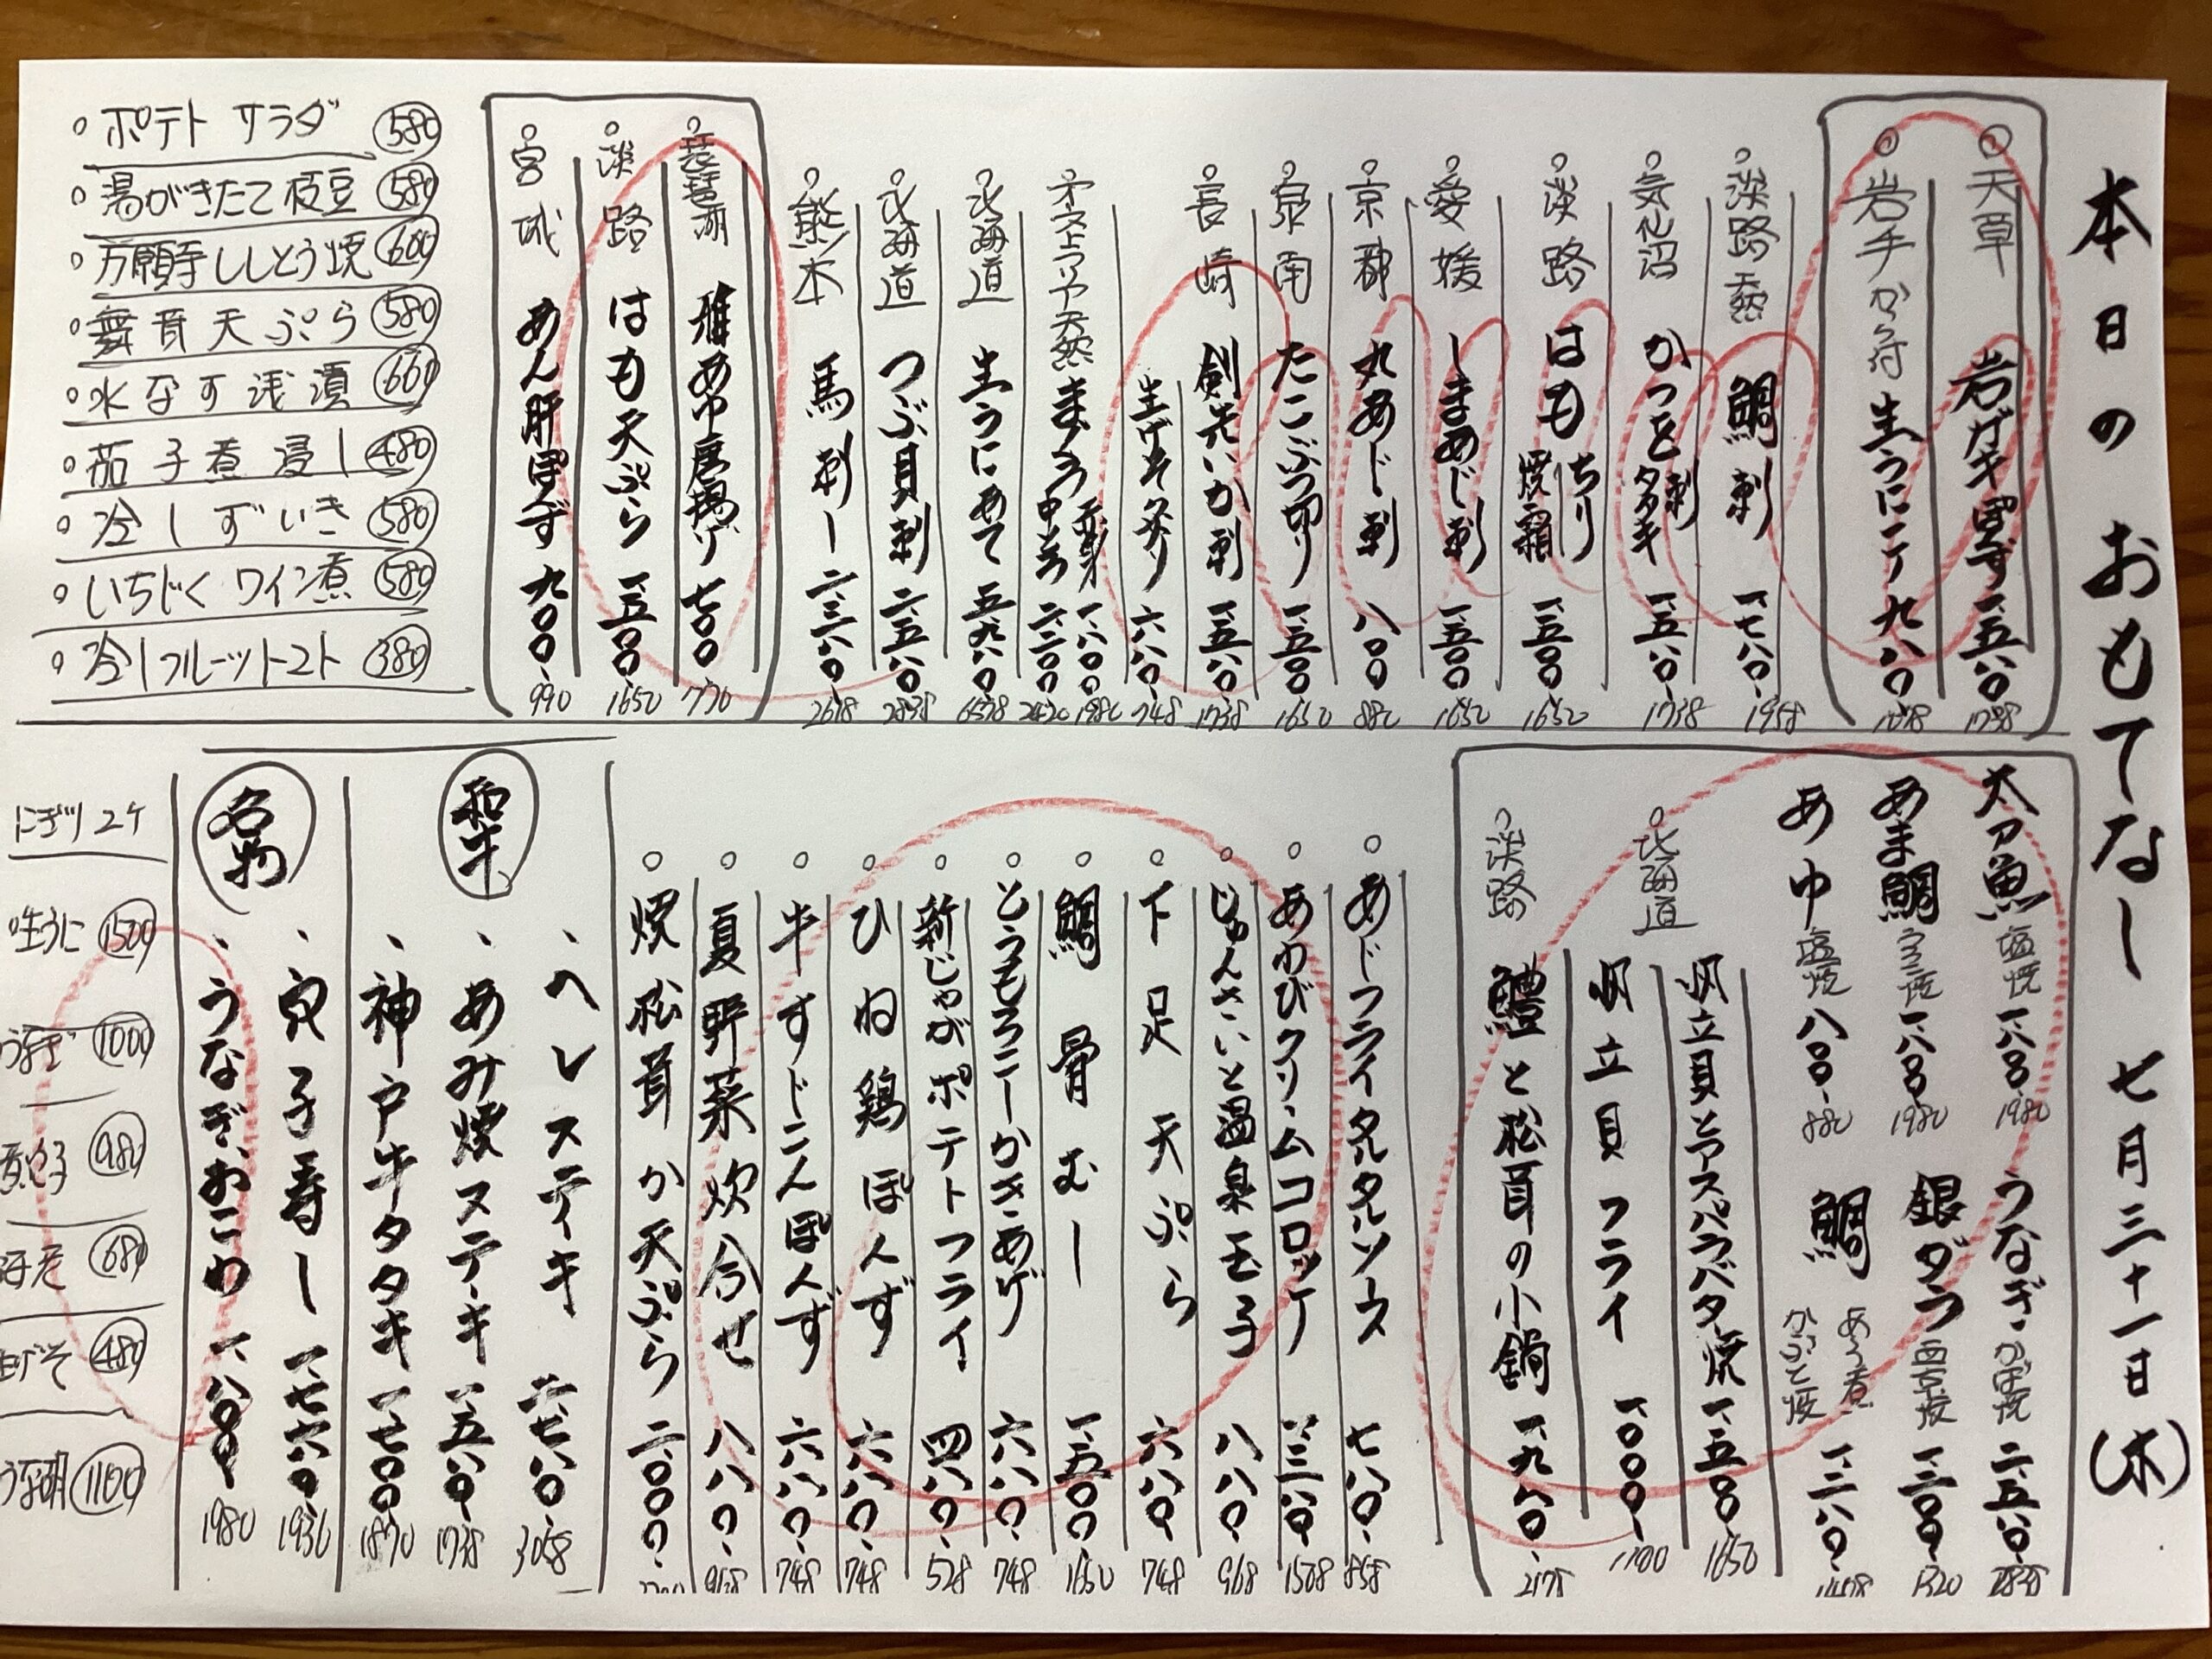 本日のおもてなし 七月三十一日(木)
天草 岩ガキ 一、五八〇、 1738
岩手 から付 生うに 一ケ 九八〇、 1078
淡路 天然 鯛刺 一、七八〇、 1958
気仙沼 かつを 刺 タタキ 一、五八〇、 1738
淡路 はも ちり 焼霜 一、五〇〇 1650
愛媛 しまあじ刺 一、五〇〇 1650
京都 丸あじ刺 八〇〇 880
泉南 たこぶつ切り 一、五〇〇 1650
長崎 剣先いか刺 一、五八〇、 1738
生げそ炙り 六八〇、 748
オーストラリア天然 まぐろ 赤身 一、八〇〇 1980
中とろ 二、二〇〇 2420
北海道 生うにあて 五、九八〇、 6578
北海道 つぶ貝刺 二、五八〇、 2838
熊本 馬刺し 二、三八〇、 2618
琵琶湖 稚あゆ唐揚げ 七〇〇 770
淡路 はも天ぷら 一、五〇〇、 1650
宮城 あん肝ぽんず 九〇〇、 990
。ポテトサラダ 580
。湯がきたて枝豆 580
。万願寺ししとう焼 600
。舞茸天ぷら 580
。水なす浅漬 660
。茄子煮浸し 480
。冷しずいき 580
。いちじくワイン煮 580
。冷しフルーツトマト 380
太刀魚 塩焼 一、八〇〇、 1980
うなぎ、かば焼 二、五八〇、 2838
あま鯛 一、八〇〇、 1980
銀ダラ 西京焼 一、二〇〇、 1320
あゆ 塩焼 八〇〇、 880
鯛 あら煮 かぶと焼 一、三八〇、
北海道 帆立貝とアスパラバター焼 一、五〇〇、 1650
帆立貝フライ 一、〇〇〇、 1100
淡路 鱧と松茸の小鍋 一、九八〇、 2178
。あじフライタルタルソース 七八〇、 858
。あわびクリームコロッケ 一、三八〇、 1508
。じゅんさいと温泉玉子 八八〇、 968
。下足天ぷら 六八〇、 748
。鯛骨むし 一、五〇〇、 1650
。とうもろこしかきあげ 六八〇、 748
。新じゃがポテトフライ 四八〇、 528
。ひね鶏ぽんず 六八〇、 748
。牛すじこんぽんず 六八〇、 748
。夏野菜炊合せ 八八〇、 968
。焼松茸か天ぷら 二、〇〇〇、
和牛
、ヘレステーキ 二、七八〇、 3058
、あみ焼ステーキ 一、五八〇、 1738
、神戸牛タタキ 一、七〇〇、 1870
名物
、穴子寿し 一、七六〇、 1936
、うなぎ、おこわ 一、八〇〇、 1980
にぎり 2ケ
生うに 1500
うなぎ 1000
煮穴子 980
海老 680
生げそ 480
うな胡 1100